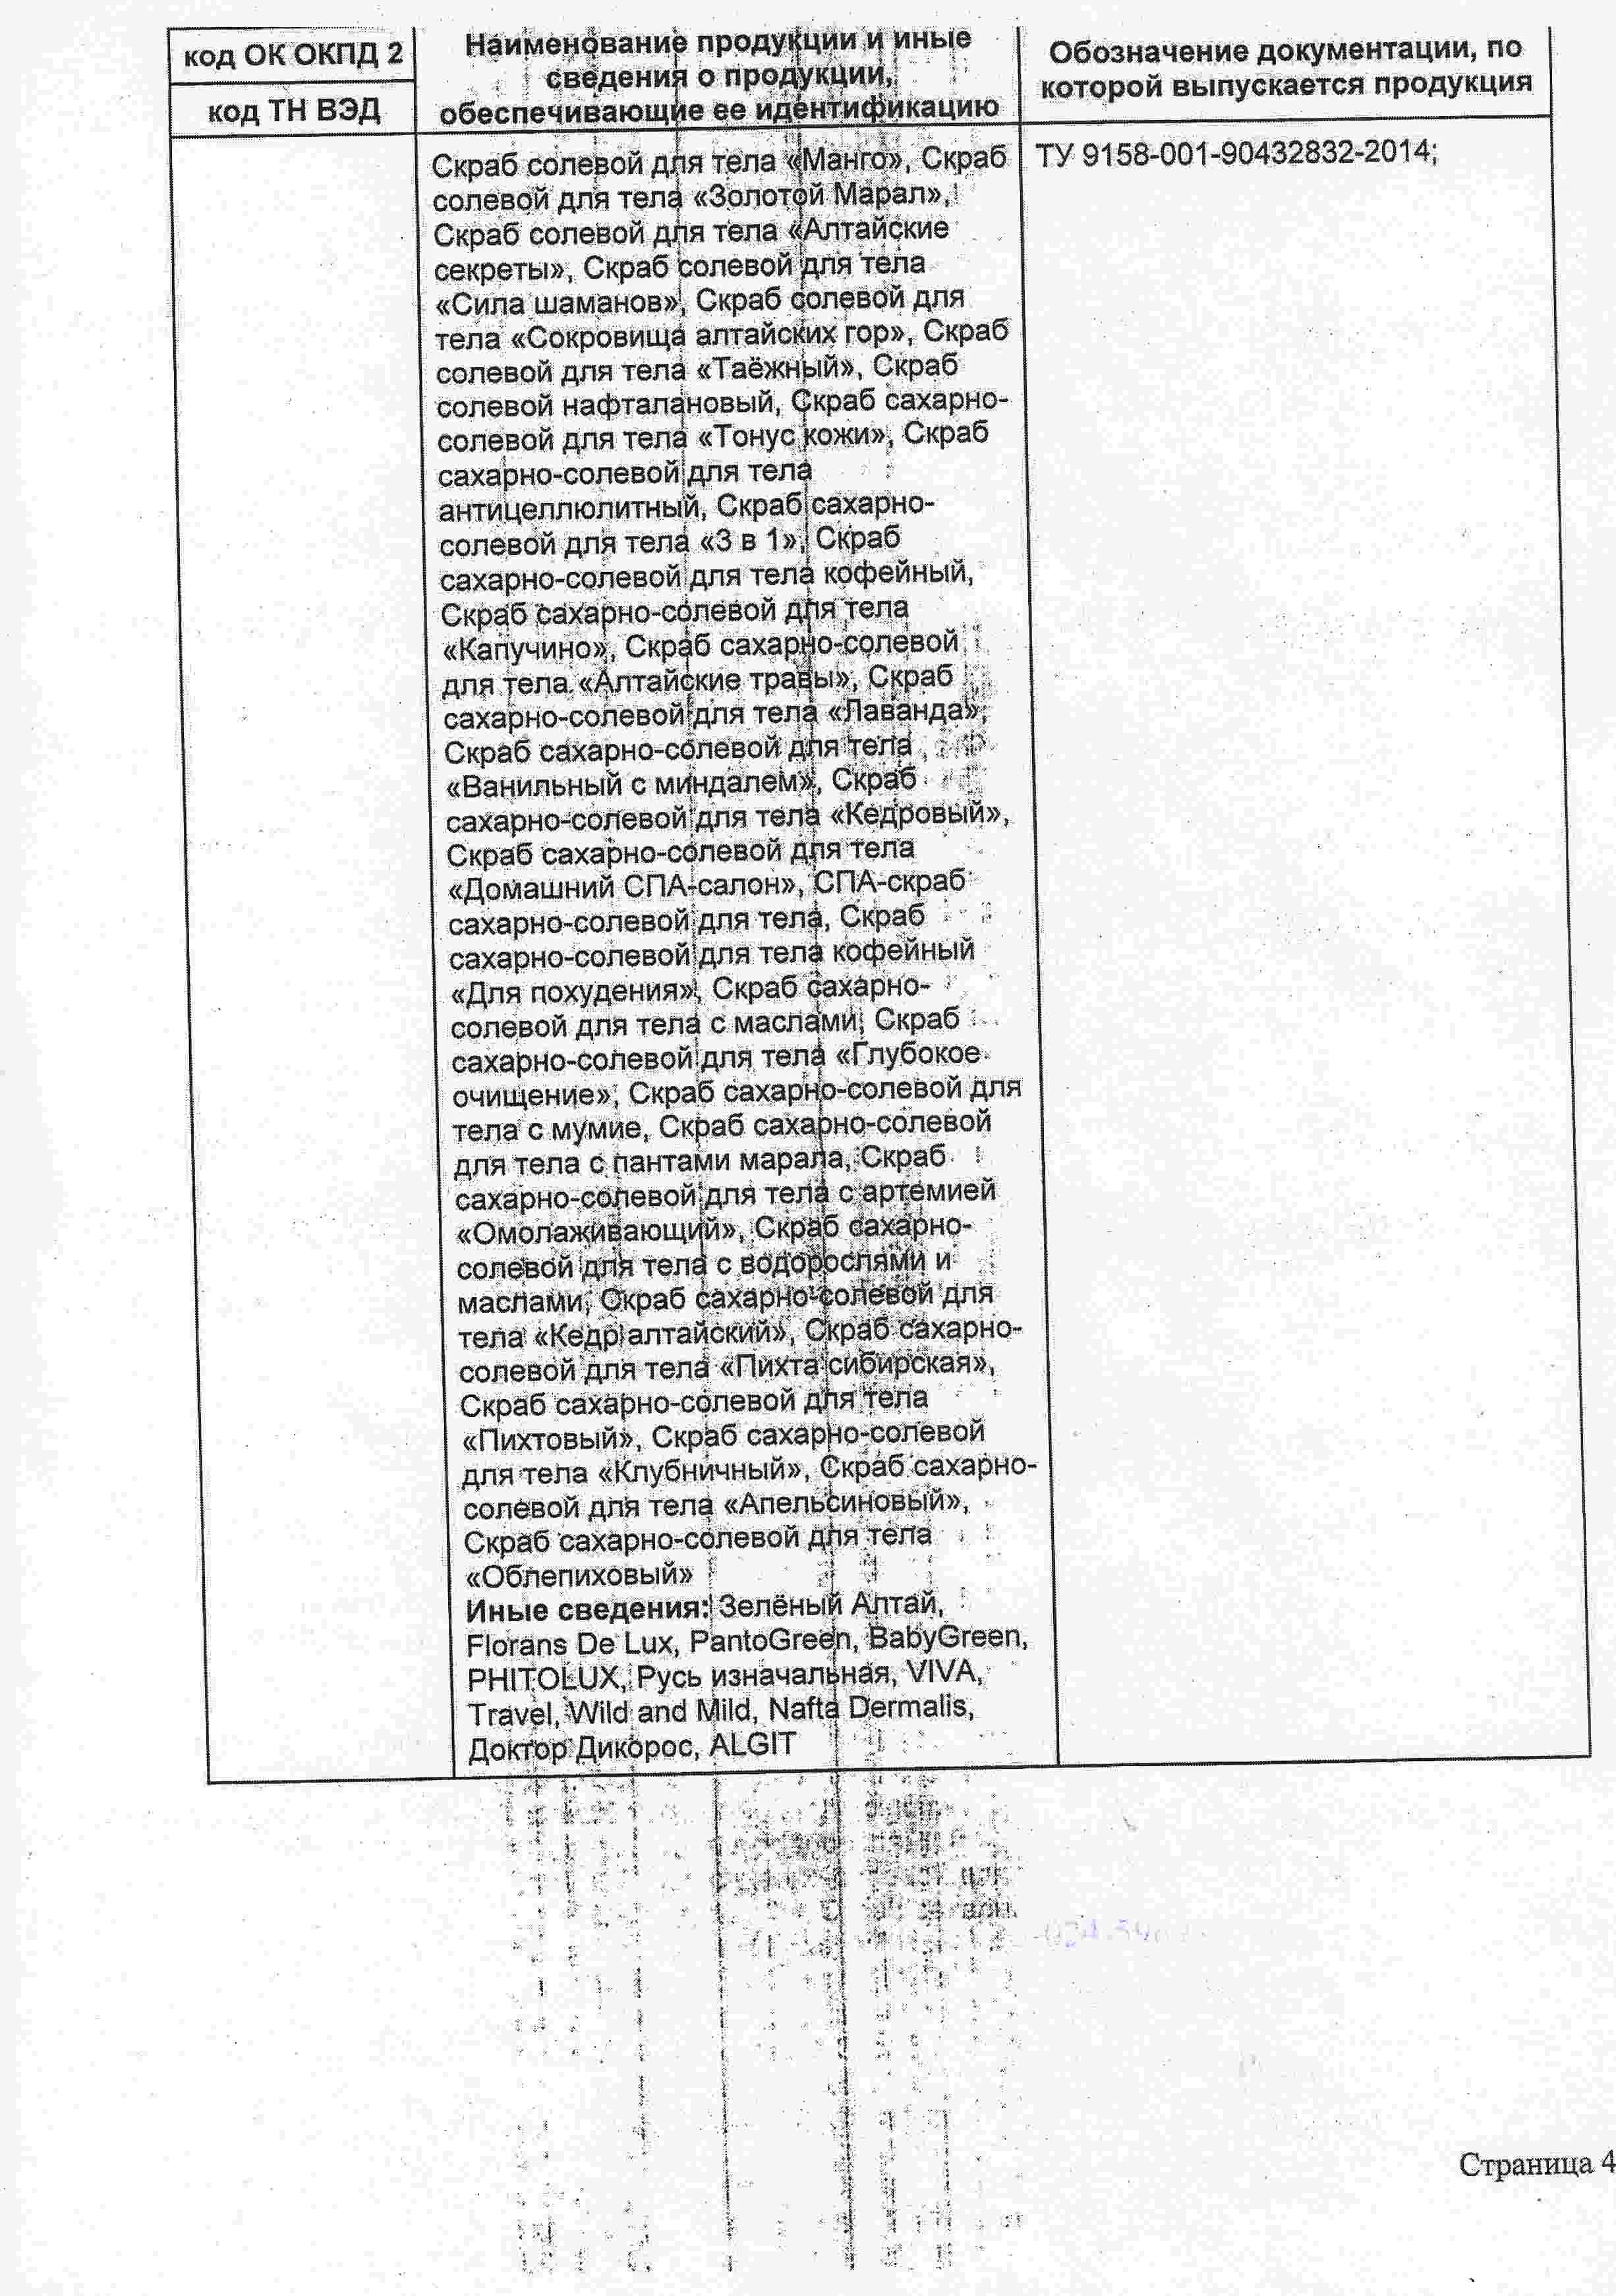 код ОК ОКПД 2
код ТН ВЭД
Наименование продукции и иные
сведения о продукции,
обеспечивающие ее идентификацию
Обозначение документации, по
которой выпускается продукция
Скраб солевой для тела «Манго», Скраб
солевой для тела «Золотой Марал»,
Скраб солевой для тела «Алтайские
секреты», Скраб солевой для тела
«Сила шаманов», Скраб солевой для
тела «Сокровища алтайских гор», Скраб
солевой для тела «Таёжный», Скраб
солевой нафталановый, Скраб сахарно-
солевой для тела «Тонус кожи», Скраб
сахарно-солевой для тела
антицеллюлитный, Скраб сахарно-
солевой для тела «3 в 1», Скраб
сахарно-солевой для тела кофейный,
Скраб сахарно-солевой для тела
«Капучино», Скраб сахарно-солевой
для тела «Алтайские травы», Скраб
сахарно-солевой для тела «Лаванда»,
Скраб сахарно-солевой для тела
«Ванильный с миндалем», Скраб
сахарно-солевой для тела «Кедровый»,
Скраб сахарно-солевой для тела
«Домашний СПА-салон», СПА-скраб
сахарно-солевой для тела, Скраб
сахарно-солевой для тела кофейный
«Для похудения», Скраб сахарно-
солевой для тела с маслами, Скраб
сахарно-солевой для тела «Глубокое
очищение», Скраб сахарно-солевой для
тела с мумие, Скраб сахарно-солевой
для тела с пантами марала, Скраб
сахарно-солевой для тела с артемией
«Омолаживающий», Скраб сахарно-
солевой для тела с водорослями и
маслами, Скраб сахарно-солевой для
тела «Кедр алтайский», Скраб сахарно-
солевой для тела «Пихта сибирская»,
Скраб сахарно-солевой для тела
«Пихтовый», Скраб сахарно-солевой
для тела «Клубничный», Скраб сахарно-
солевой для тела «Апельсиновый»,
Скраб сахарно-солевой для тела
«Облепиховый»
Иные сведения: Зелёный Алтай,
Florans De Lux, PantoGreen, BabyGreen,
PHITOLUX, Русь изначальная, VIVA,
Travel, Wild and Mild, Nafta Dermalis,
Доктор Дикорос, ALGIT
ТУ 9158-001-90432832-2014;
Страница 4